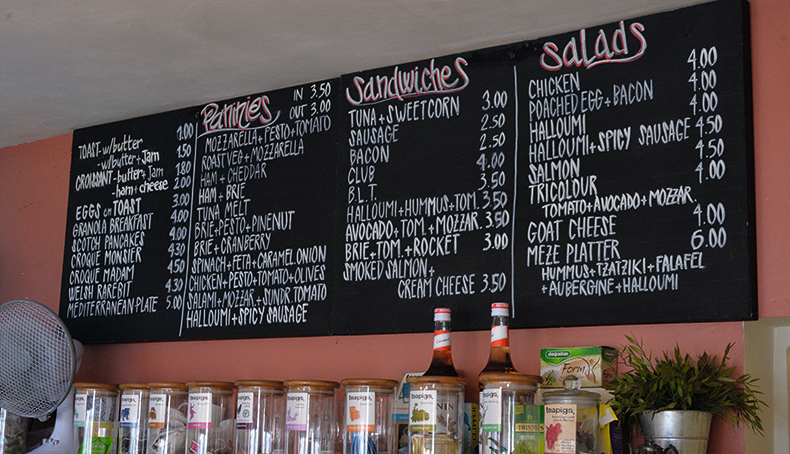 TOAST-w/butter 1.00
-w/butter+Jam 1.50
CROISSANT-butter+Jam 1.80
-ham+cheese 2.00
EGGS on TOAST 3.00
GRANOLA BREAKFAST 4.00
SCOTCH PANCAKES
CROQUE MONSIER
CROQUE MADAM
WELSH RAREBIT
MEDITERRANEAN PLATE 5.00
Paninies
IN 3.50
OUT 3.00
MOZZARELLA+PESTO+TOMATO
ROAST VEG+MOZZARELLA
HAM+CHEDDAR
HAM+BRIE
TUNA MELT
BRIE+PESTO+PINENUT
BRIE+CRANBERRY
SPINACH+FETA+CARAMEL ONION
CHICKEN+PESTO+TOMATO+OLIVES
SALAMI+MOZZAR.+SUNDR.TOMATO
HALLOUMI+SPICY SAUSAGE
Sandwiches
TUNA+SWEETCORN 3.00
SAUSAGE 2.50
BACON 2.50
CLUB 4.00
B.L.T. 3.50
HALLOUMI+HUMMUS+TOM. 3.50
AVOCADO+TOM.+MOZZAR. 3.50
BRIE+TOM.+ROCKET 3.00
SMOKED SALMON+
CREAM CHEESE 3.50
Salads
CHICKEN 4.00
POACHED EGG+BACON 4.00
HALLOUMI 4.00
HALLOUMI+SPICY SAUSAGE 4.50
SALMON 4.50
TRICOLOUR 4.00
TOMATO+AVOCADO+MOZZAR.
GOAT CHEESE 4.00
MEZE PLATTER 6.00
HUMMUS+TZATZIKI+FALAFEL
+AUBERGINE+HALLOUMI
doğadan
Form
teapigs.
teapigs.
teapigs.
teapigs.
teapigs.
teapigs.
teapigs.
teapigs.
teapigs.
teapigs.